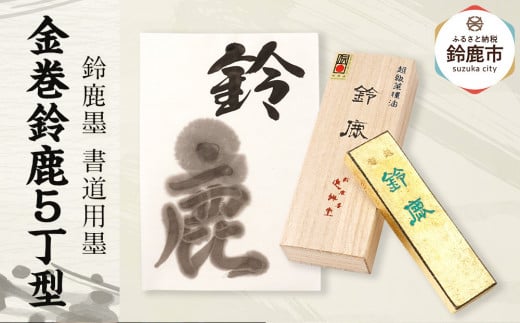 金巻鈴鹿５丁型
鈴鹿墨 書道用墨
鈴
鹿
超級菜種油
鈴鹿
鈴鹿
ふるさと納税
鈴鹿市
suzuka city